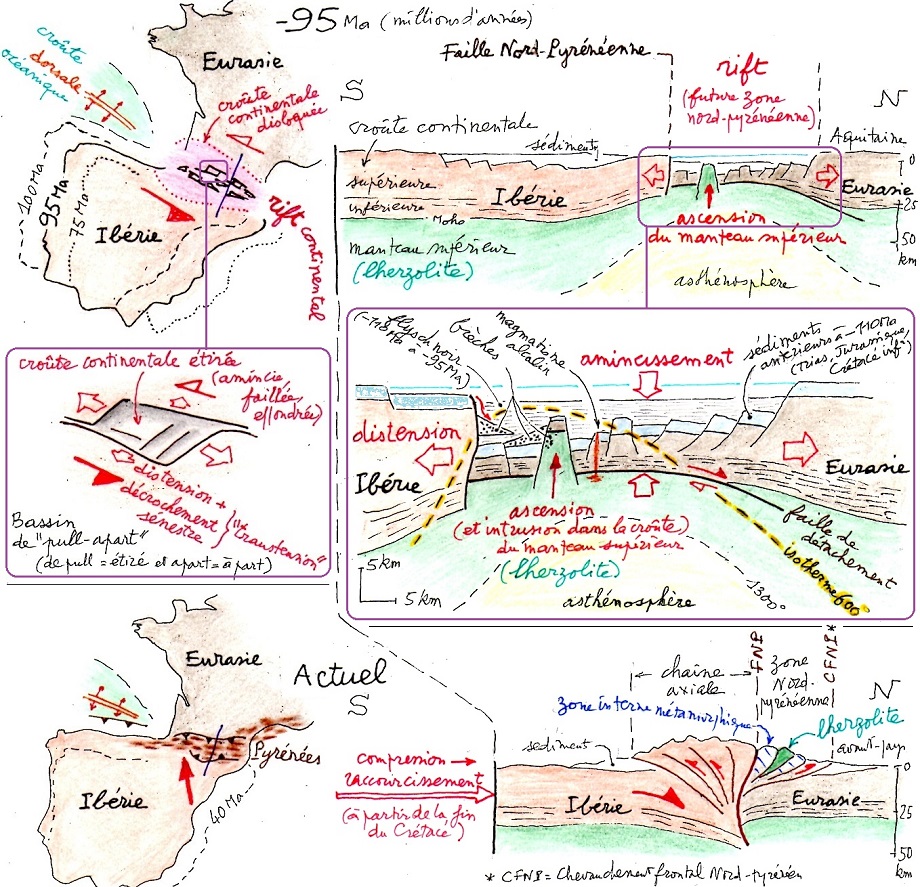 -95 Ma (millions d'années)
croûte
dorsale
océanique
Eurasie
croûte
continentale
disloquée
100 Ma
95 Ma
75 Ma
Ibérie
rift continental
Faille Nord-Pyrénéenne
S
rift
(future zone
nord-pyrénéenne)
N
croûte continentale
sédiments
Aquitaine
supérieure
inférieure
Moho
Ibérie
Eurasie
0
25
50
km
ascension
du manteau supérieur
manteau supérieur
(lherzolite)
asthénosphère
croûte continentale étirée
(amincie,
faillée,
effondrée)
distension +
décrochement
sénestre
"transtension"
Bassin
de "pull-apart"
(de pull = étiré et apart = à part)
flysch noir
(-118 Ma
à -95 Ma)
brèches
magmatisme
alcalin
amincissement
sédiments
antérieurs à -110 Ma
(Trias, Jurassique,
Crétacé inf.)
distension
Ibérie
Eurasie
ascension
(et intrusion dans la croûte)
du manteau supérieur
(lherzolite)
faille de
détachement
isotherme 600°
1300°
5 km
5 km
asthénosphère
Eurasie
Actuel
Pyrénées
Ibérie
40 Ma
S
chaîne
axiale
FNP
zone
Nord-
pyrénéenne
CFNP*
N
zone interne métamorphique
lherzolite
sédiments
avant-pays
compression
raccourcissement
(à partir de la fin
du Crétacé)
Ibérie
Eurasie
0
25
50
km
* CFNP = Chevauchement frontal Nord-pyrénéen